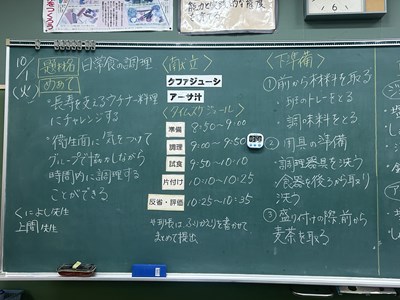 10/1
(火)
題材名 日常食の調理
めあて
・長寿を支えるウチナー料理
にチャレンジする
・衛生面に気をつけて
グループで協力しながら
時間内に調理する
ことができる
くによし先生
上間先生
〈献立〉
クファジューシー
アーサ汁
〈タイムスケジュール〉
準備 8:50〜9:00
調理 9:00〜9:50
試食 9:50〜10:10
片付け 10:10〜10:25
反省・評価 10:25〜10:35
ふりかえりを書かせて
まとめて提出
〈下準備〉
①前から材料を取る
・班のトレーをとる
・調味料をとる
②用具の準備
・調理器具を洗う
・食器を後ろから取り
洗う
③盛り付けの際、前から
麦茶を取る